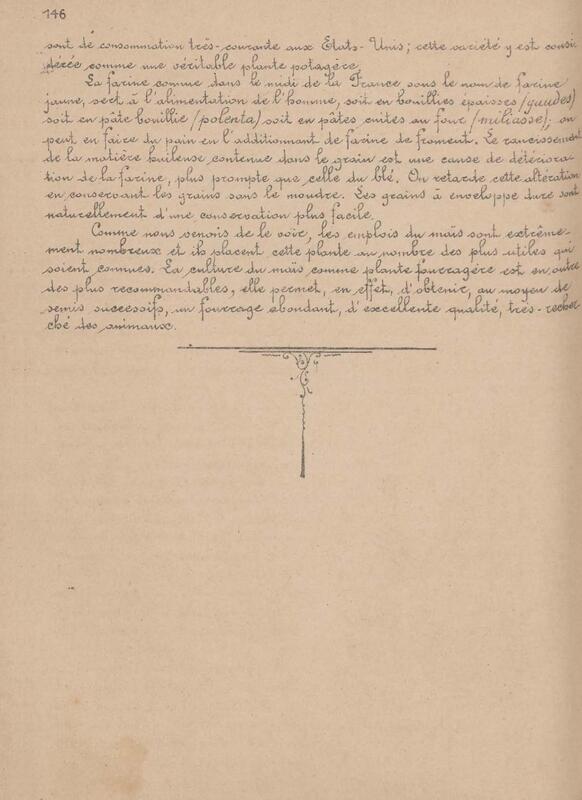 146
sont de consommation très-courante aux Etats-Unis; cette variété y est consi
dérée comme une véritable plante potagère.
La farine connue dans le midi de la France sous le nom de farine
jaune, sert à l'alimentation de l'homme, soit en bouillies épaisses (gaudes)
soit en pâte bouillie (polenta) soit en pâtes cuites au four (miliasse); on
peut en faire du pain en l'additionnant de farine de froment. Le rancissement
de la matière huileuse contenue dans le grain est une cause de détériora-
tion de la farine, plus prompte que celle du blé. On retarde cette altération
en conservant les grains sans le moudre. Les grains à enveloppe dure sont
naturellement d'une conservation plus facile.
Comme nous venons de le voir, les emplois du maïs sont extrême-
ment nombreux et ils placent cette plante au nombre des plus utiles qui
soient connues. La culture du maïs comme plante fourragère est en outre
des plus recommandables, elle permet, en effet, d'obtenir, au moyen de
semis successifs, un fourrage abondant, d'excellente qualité, très-recher
ché des animaux.